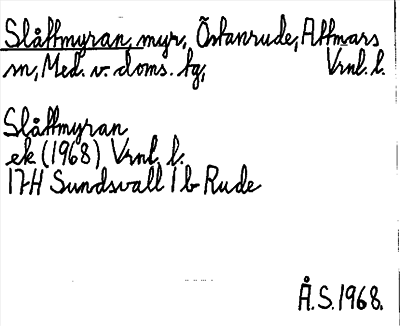 Slåttmyran, myr, Östanrude, Attmars
sn, Med. v. doms. tg, Vrnl. l.
Slåttmyran
ek (1968) Vrnl. l.
17H Sundsvall 1 b Rude
Å.S. 1968.